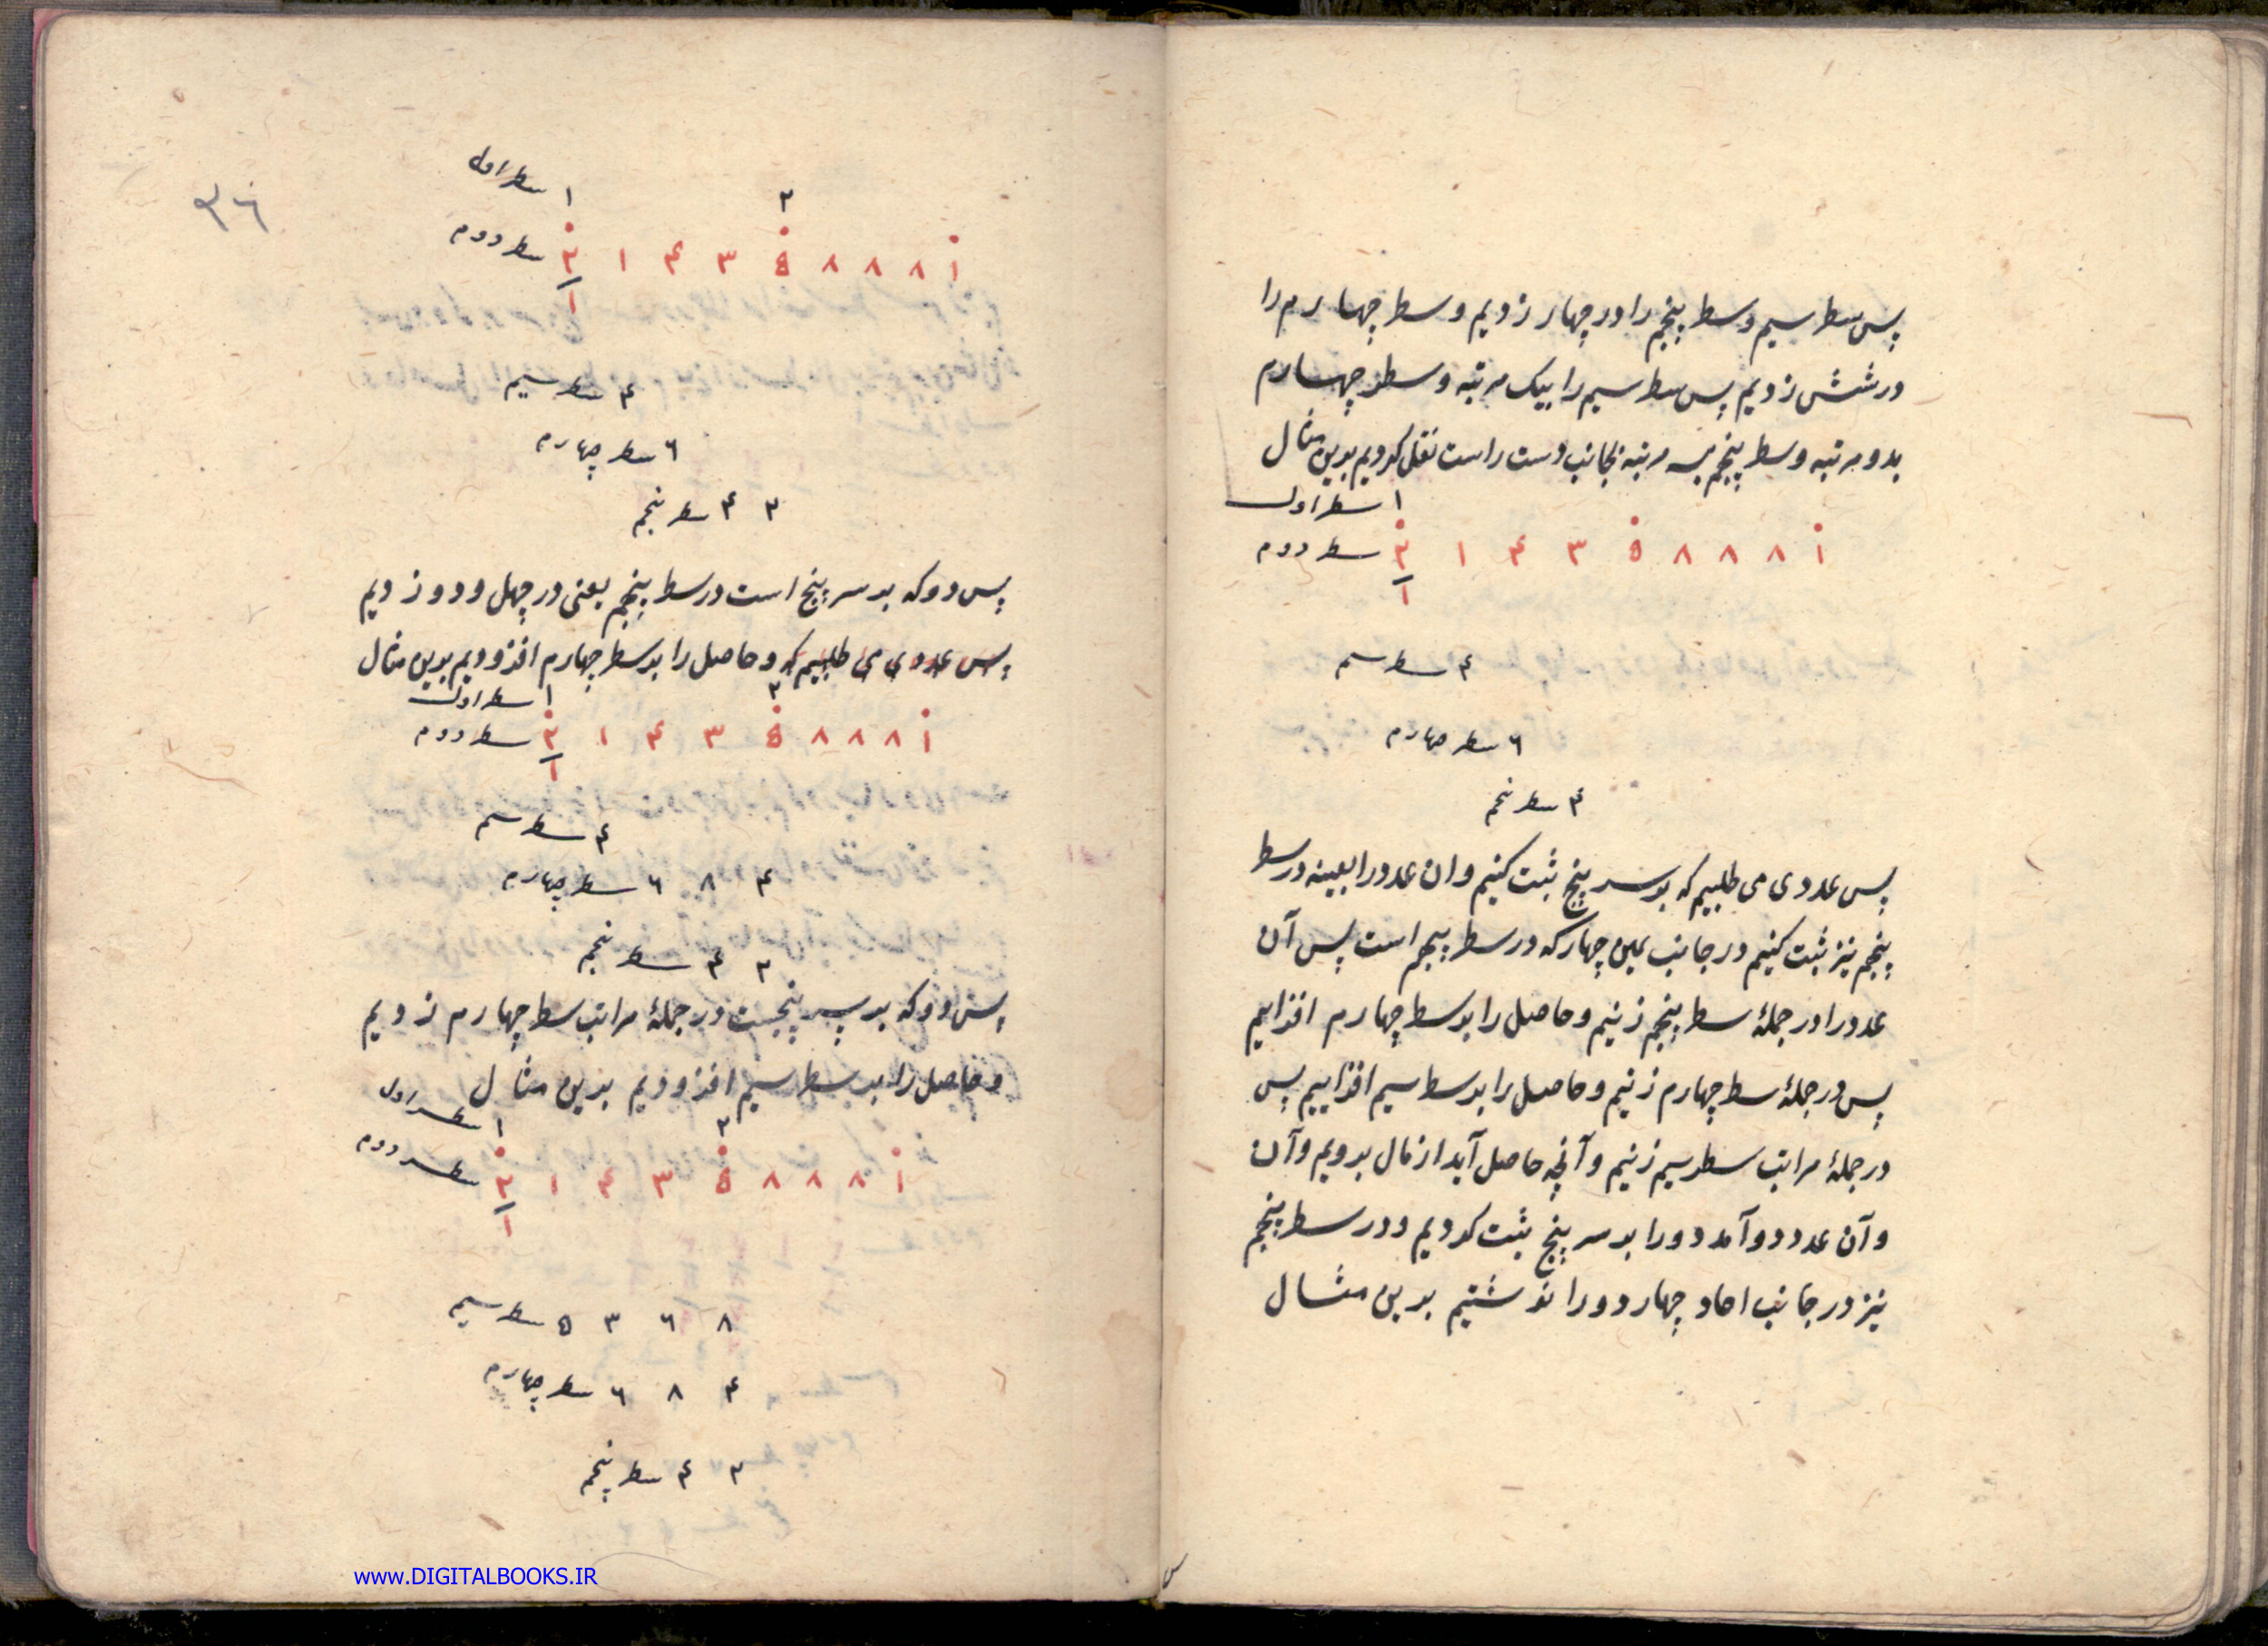 پس سطر سیم و سطر پنجم را در چهار زدیم و سطر چهارم را
در شش زدیم پس سطر سیم را بیک مرتبه و سطر چهارم
بدو مرتبه و سطر پنجم بسه مرتبه بجانب دست راست نقل کردیم بدین مثال
۱ سطر اول
۲ ۱ ۴ ۳ ۵ ۸ ۸ ۸ ۱ سطر دوم
۱
۴ سطر سیم
۶ سطر چهارم
۴ سطر پنجم
پس عددی می طلبیم که بر سر پنج ثبت کنیم و ان عدد را بعینه در سطر
پنجم نیز ثبت کنیم در جانب یمین چهار که در سطر پنجم است پس آن
عدد را در جملهٔ سطر پنجم زنیم و حاصل را بر سطر چهارم افزاییم
پس در جملهٔ سطر چهارم زنیم و حاصل را بر سطر سیم افزاییم پس
در جملهٔ مراتب سطر سیم زنیم و آنچه حاصل آید از مال برویم و آن
و آن عدد دو آمد دو را بر سر پنج ثبت کردیم و در سطر پنجم
نیز در جانب احاد چهار دو را نوشتیم برین مثال
۳۶
۱ ۲ سطر اول
۲ ۱ ۴ ۳ ۵ ۸ ۸ ۸ ۱ سطر دوم
۱
۴ سطر سیم
۶ سطر چهارم
۴ ۲ سطر پنجم
پس دو که بر سر پنج است در سطر پنجم یعنی در چهل و دو زدیم
پس عددی می طلبیم که و حاصل را بر سطر چهارم افزودیم بدین مثال
۱ ۲ سطر اول
۲ ۱ ۴ ۳ ۵ ۸ ۸ ۸ ۱ سطر دوم
۱
۴ سطر سیم
۶ ۸ ۴ سطر چهارم
۴ ۲ سطر پنجم
پس دو که بر سر پنجست در جملهٔ مراتب سطر چهارم زدیم
و حاصل را بر سطر سیم افزودیم بدین مثال
۱ ۲ سطر اول
۲ ۱ ۴ ۳ ۵ ۸ ۸ ۸ ۱ سطر دوم
۱
۵ ۳ ۶ ۸ سطر سیم
۶ ۸ ۴ سطر چهارم
۴ ۲ سطر پنجم
www.DIGITALBOOKS.IR